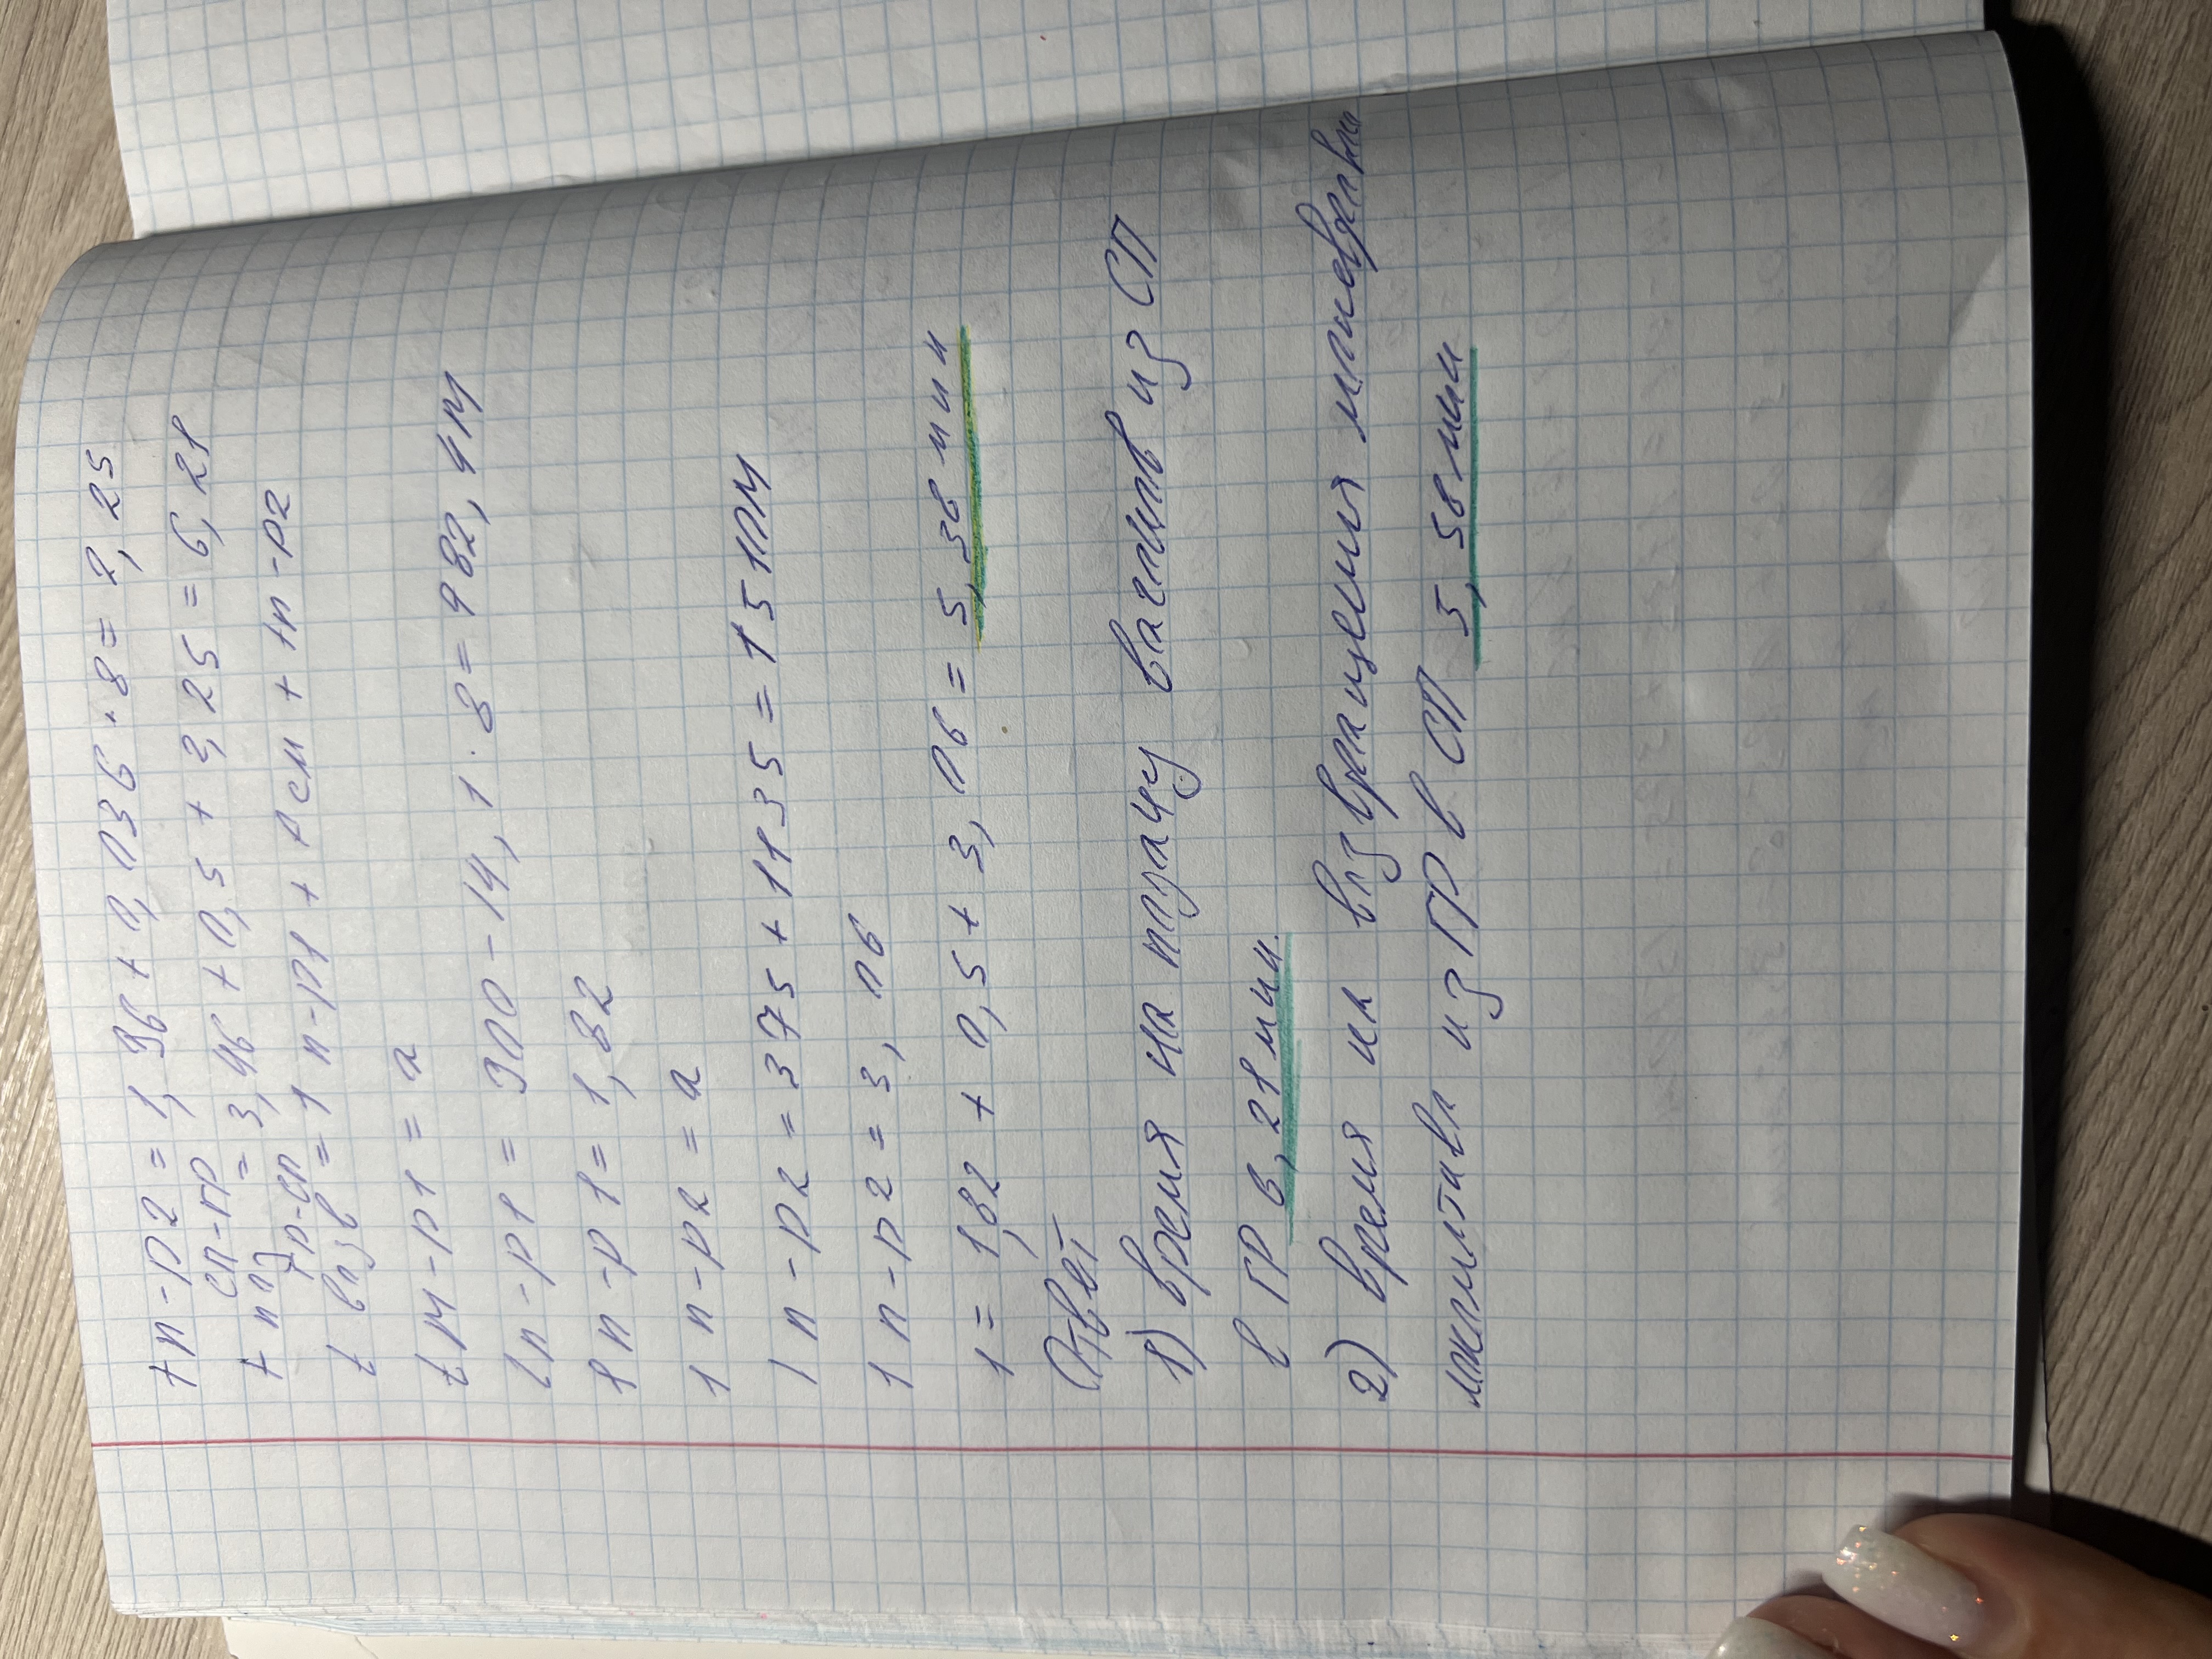 tп-р2 = 1,96 + 0,036 · 8 = 2,25
t под сп-гр = 3,46 + 0,5 + 2,25 = 6,21
t возв гр-сп = 1 п-р1 + 0 см + tп-р2
t м-р1 = a
lп-р1 = 300 - 14,1 · 8 = 982,4м
1п-р1 = 1,82
1 п-р2 = a
1 п-р2 = 375 + 1135 = 1510м
1 п-р2 = 3,06
1 = 1,82 + 0,5 + 3,06 = 5,38 мин
Ответ
1) время на подачу вагонов из СП
в ГР 6,21 мин.
2) время на возвращения маневровы
локомотива из ГР в СП 5,58мин